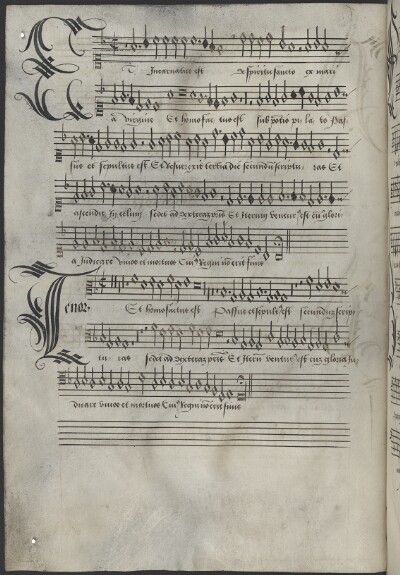 Et Incarnatus est de spiritu sancto ex mari
a virgine Et homo fac tus est sub potio pi la to Pas
sus et sepultus est Et resur rexit tertia die secundu scriptu ras Et
ascendit in celum sedet ad dexteraz Et iteruz ventur est cu glori
a Iudicare vivos et mortuos Cui regni no erit finis
Tenor Et homo factus est Passus et sepult est secunduz scrip
tu ras sedet ad dexteraz Et iteru ventur est cuz gloria Iu
dicare vivos et mortuos Cui regni no erit finis